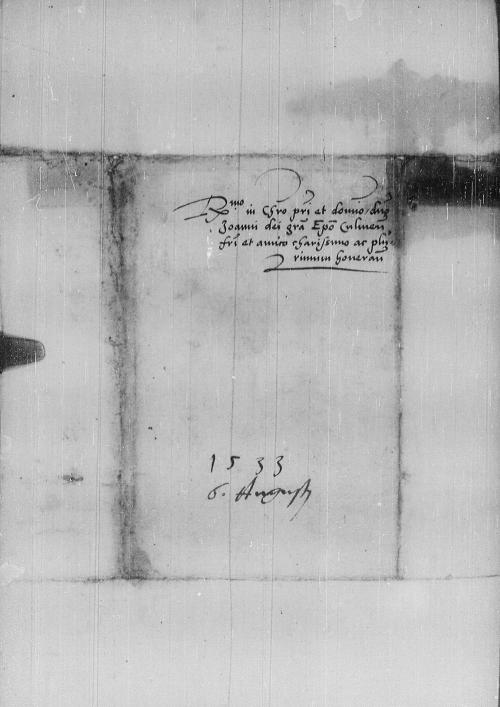 R^mo in Chro pri et domno, dno
Joanni dei gra Epo Culmen
fri et amico charissimo ac plu-
rimum honoran
1533
6. Augusti